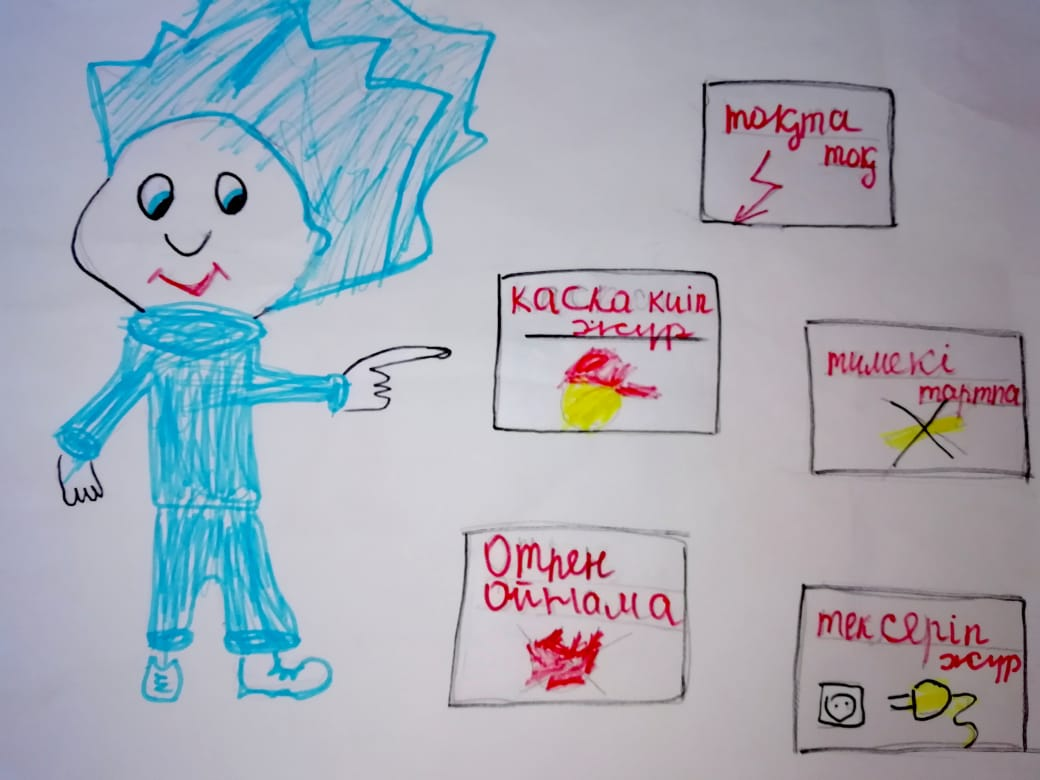 тоқта
тоқ
каска киіп
жүр
тимекі
тартпа
Отрен
ойнама
тексеріп
жүр